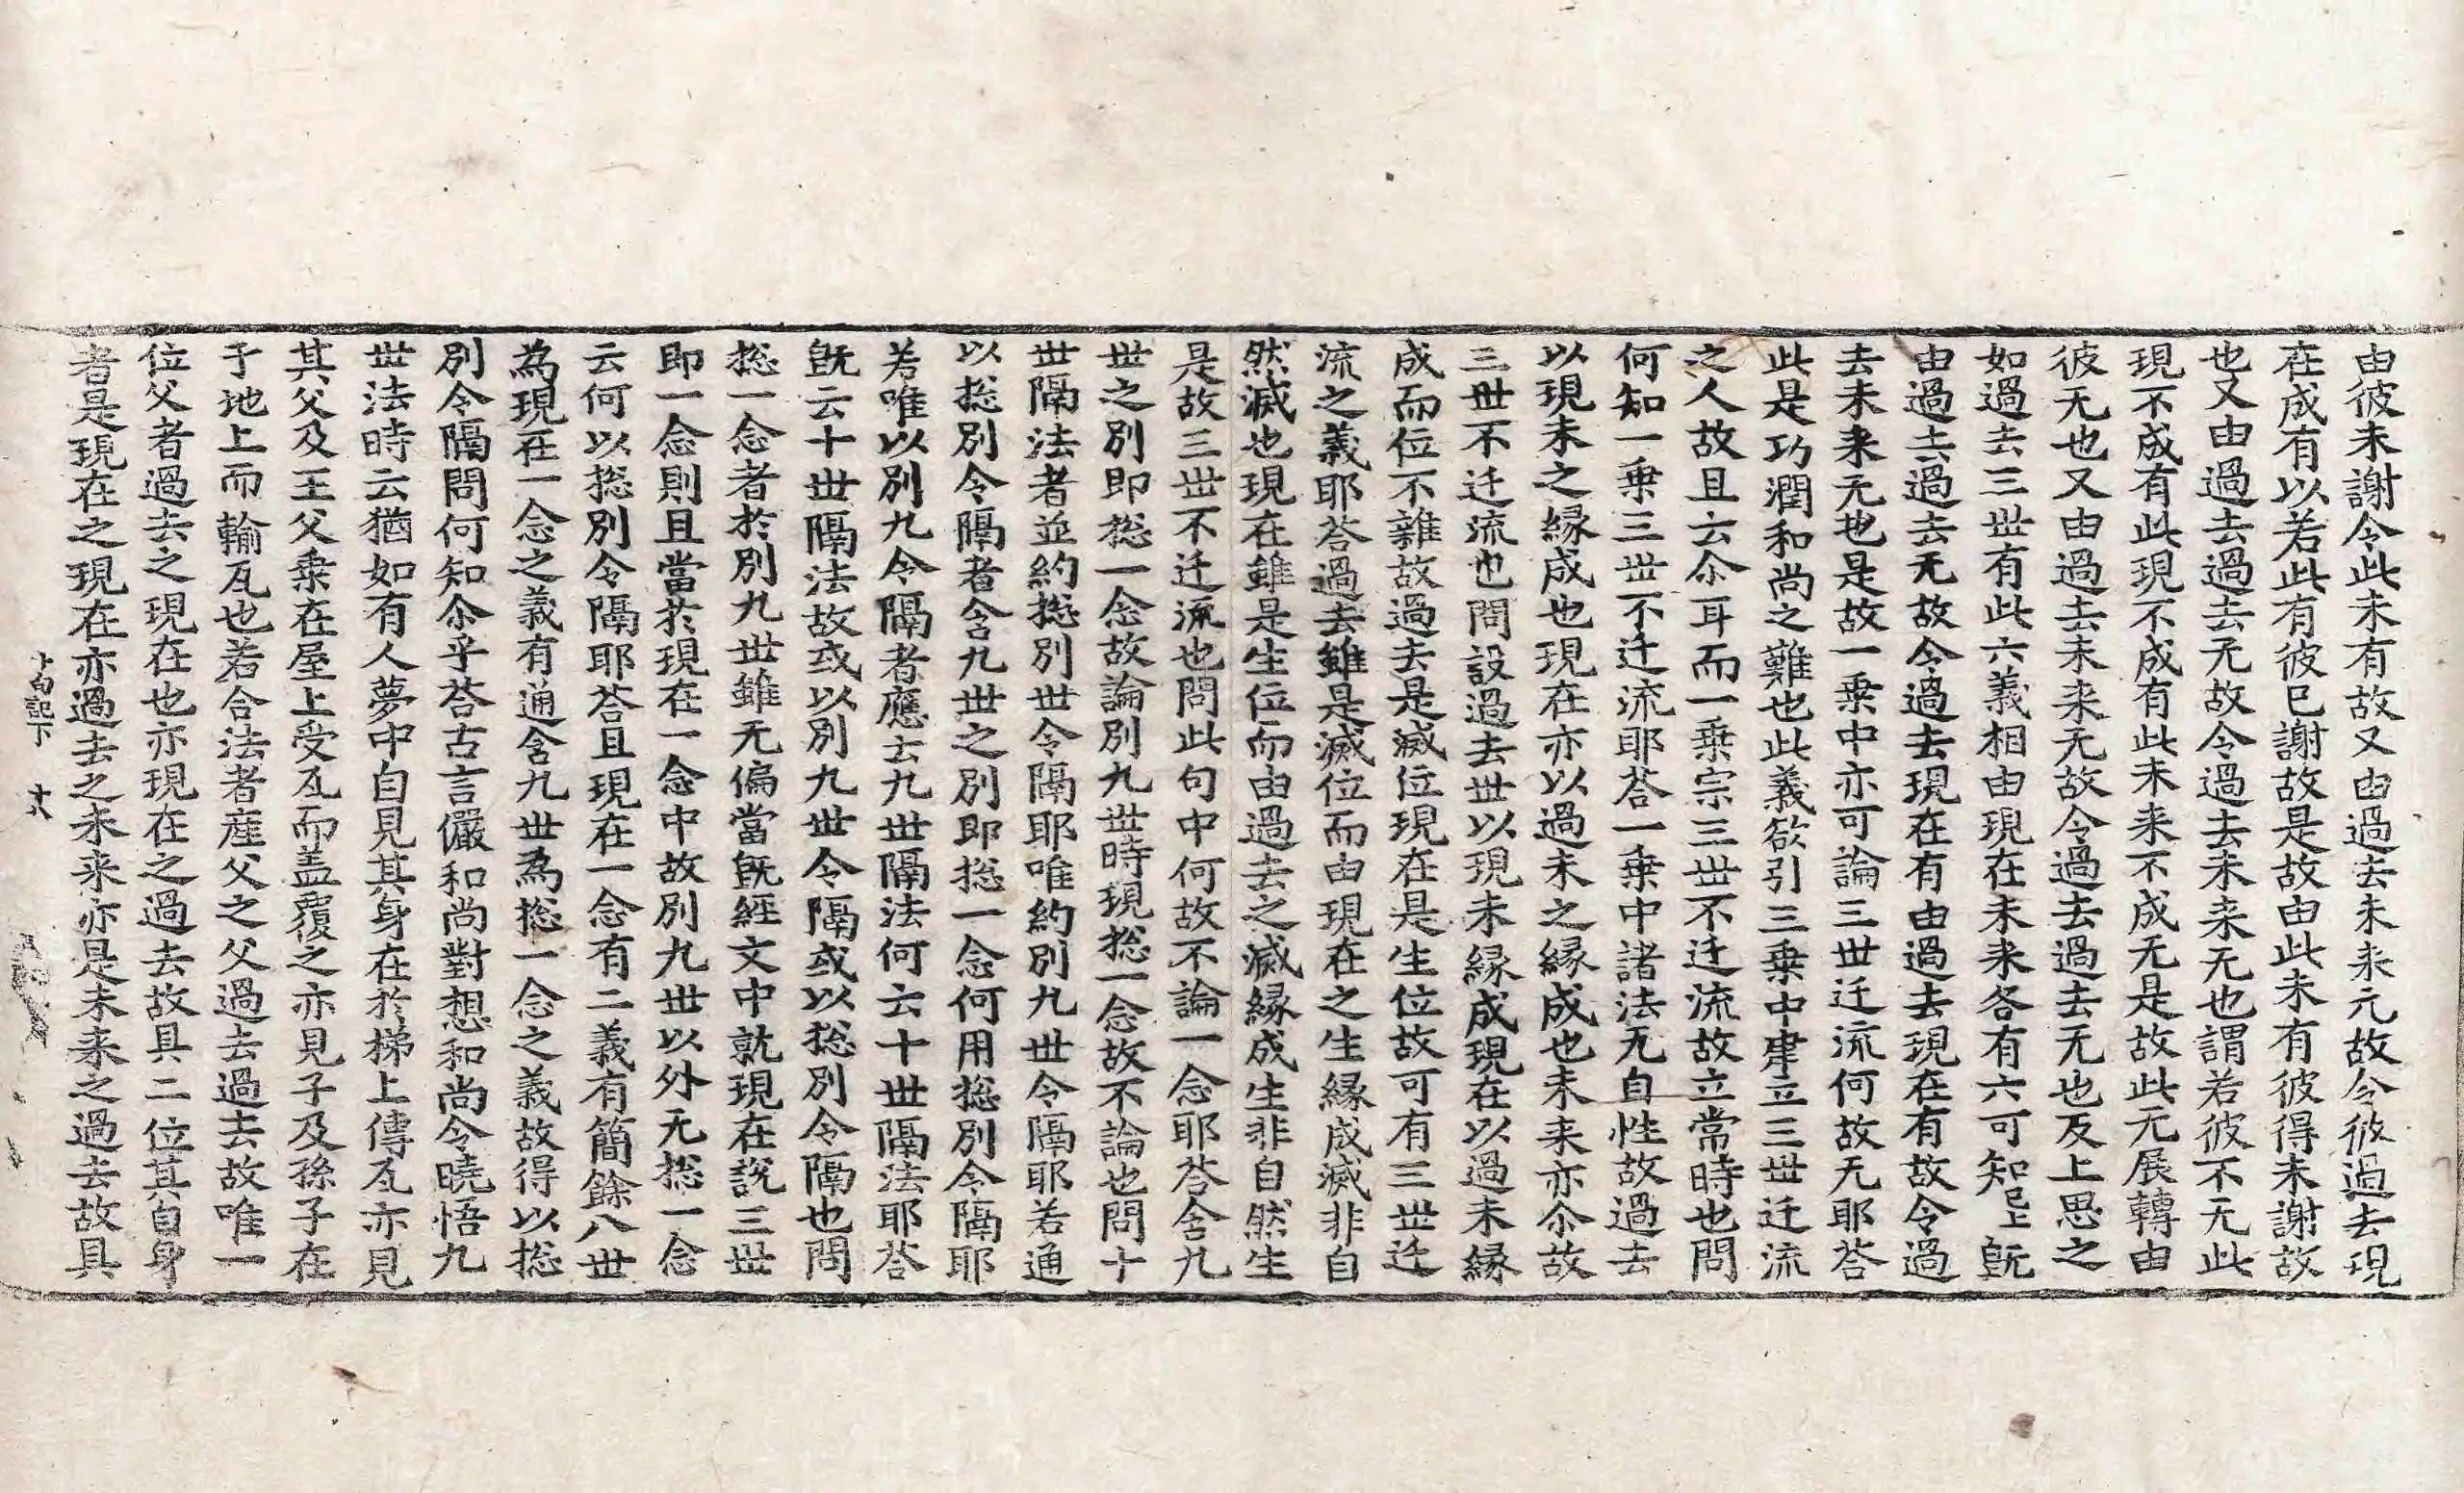 由彼未謝令此未有故又由過去未来元故令彼過去現
在成有以若此有彼已謝故是故由此未有彼得未謝故
也又由過去過去无故令過去未来无也謂若彼不无此
現不成有此現不成有此未来不成无是故此无展轉由
彼无也又由過去未来无故令過去過去无也反上思之
如過去三世有此六義相由現在未来各有六可知已上旣
由過去過去无故令過去現在有由過去現在有故令過
去未来无也是故一乗中亦可論三世迁流何故无耶荅
此是功潤和尚之難也此義欲引三乗中建立三世迁流
之人故且云尒耳而一乗宗三世不迁流故立常時也問
何知一乗三世不迁流耶荅一乗中諸法无自性故過去
以現未之縁成也現在亦以過未之縁成也未来亦尒故
三世不迁流也問設過去世以現未縁成現在以過未縁
成而位不雜故過去是滅位現在是生位故可有三世迁
流之義耶荅過去雖是滅位而由現在之生縁成滅非自
然滅也現在雖是生位而由過去之滅縁成生非自然生
是故三世不迁流也問此句中何故不論一念耶荅含九
世之別即捴一念故論別九世時現捴一念故不論也問十
世隔法者並約捴別世令隔耶唯約別九世令隔耶若通
以捴別令隔者含九世之別即捴一念何用捴別令隔耶
若唯以別九令隔者應云九世隔法何云十世隔法耶荅
旣云十世隔法故或以別九世令隔或以捴別令隔也問
捴一念者於別九世雖无偏當旣經文中就現在說三世
即一念則且當於現在一念中故別九世以外无捴一念
云何以捴別令隔耶荅且現在一念有二義有簡餘八世
為現在一念之義有通含九世為捴一念之義故得以捴
別令隔問何知尒乎荅古言儼和尚對想和尚令曉悟九
世法時云猶如有人夢中自見其身在於梯上傳瓦亦見
其父及王父乗在屋上受瓦而盖覆之亦見子及孫子在
于地上而輸瓦也若合法者産父之父過去過去故唯一
位父者過去之現在也亦現在之過去故具二位其自身
者是現在之現在亦過去之未来亦是未来之過去故具
十句記下 十六